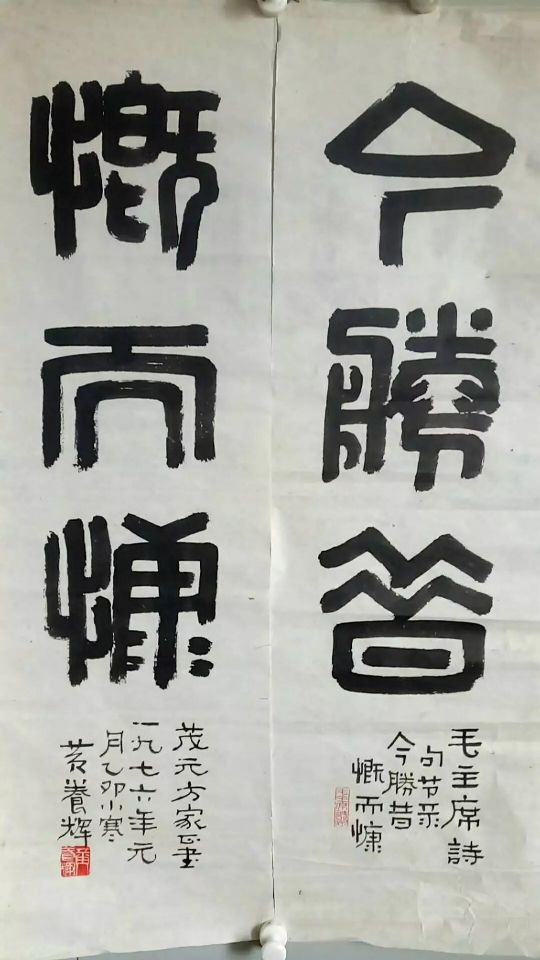 今勝昔
毛主席詩
句节录
今勝昔
慨而慷
慨而慷
茂元方家正書
一九七六年元
月乙卯小寒
黄養辉